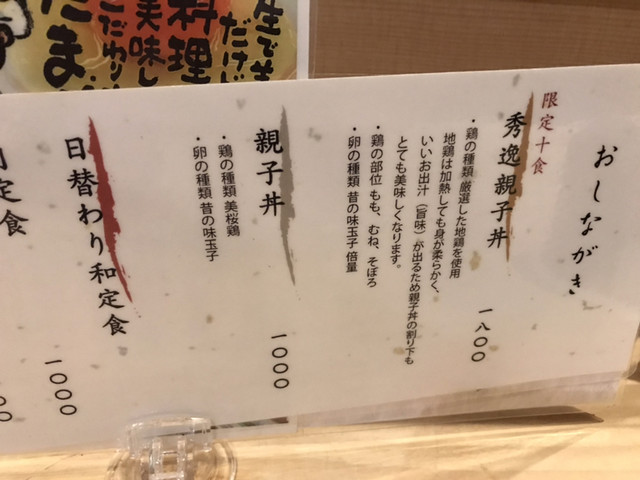 おしながき
限定十食
秀逸親子丼
一八〇〇
・鶏の種類 厳選した地鶏を使用
地鶏は加熱しても身が柔らかく、
いいお出汁（旨味）が出るため親子丼の割り下も
とても美味しくなります。
・鶏の部位 もも、むね、そぼろ
・卵の種類 昔の味玉子 倍量
親子丼
一〇〇〇
・鶏の種類 美桜鶏
・卵の種類 昔の味玉子
日替わり和定食
一〇〇〇
定食
生で
だけ
料理
美味し
こだわり
たま